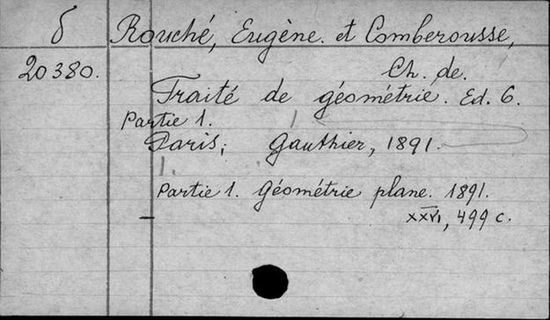 б Rouché, Eugène. et Comberousse,
20380. Ch. de.
Traité de géométrie. Ed. 6.
Partie 1.
Paris, Gauthier, 1891.
1.
Partie 1. Géométrie plane. 1891.
XXVI, 499 c.